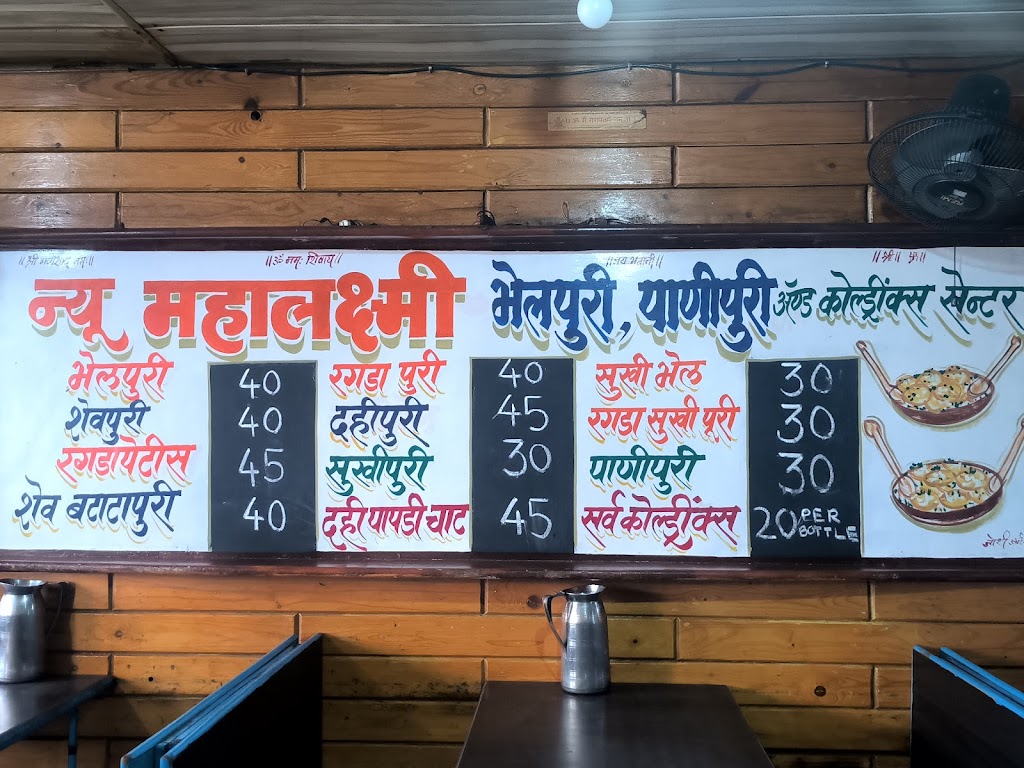 || श्री गणेशाय नमः ||
|| ॐ नमः शिवाय ||
|| जय भवानी ||
न्यू महालक्ष्मी भेलपुरी, पाणीपुरी ॲण्ड कोल्ड्रींक्स सेन्टर
भेलपुरी 40
शेवपुरी 40
रगडापेटीस 45
शेव बटाटापुरी 40
रगडा पुरी 40
दहीपुरी 45
सुखीपुरी 30
दही पापडी चाट 45
सुखी भेल 30
रगडा सुखी पूरी 30
पाणीपुरी 30
सर्व कोल्ड्रींक्स 20 PER BOTTLE